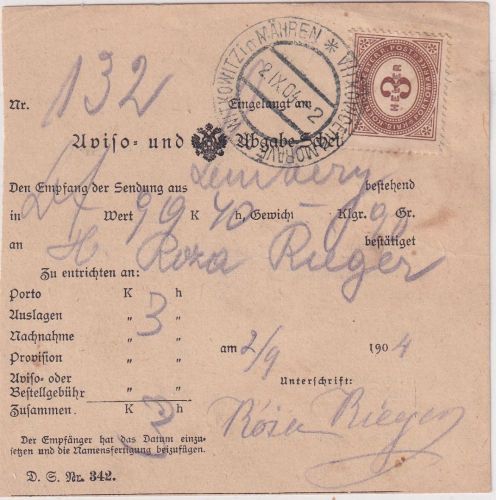 WITKOWITZ in MÄHREN * VITKOVICE MORAVĚ
2.IX.04
2
3
HELLER
Nr. 132 Eingelangt am
Aviso- und Abgabe-Schein.
Den Empfang der Sendung aus Lemberg bestehend
in Wert K 40 h, Gewich Klgr. 90 Gr.
an H Roza Rieger bestätigt
Zu entrichten an:
Porto K h
Auslagen " 3 "
Nachnahme " "
Provision " "
am 2/9 1904
Aviso- oder
Bestellgebühr " "
Unterschrift:
Zusammen K 3 h
Róza Rieger
Der Empfänger hat das Datum einzu-
setzen und die Namensfertigung beizufügen.
D. S. Nr. 342.